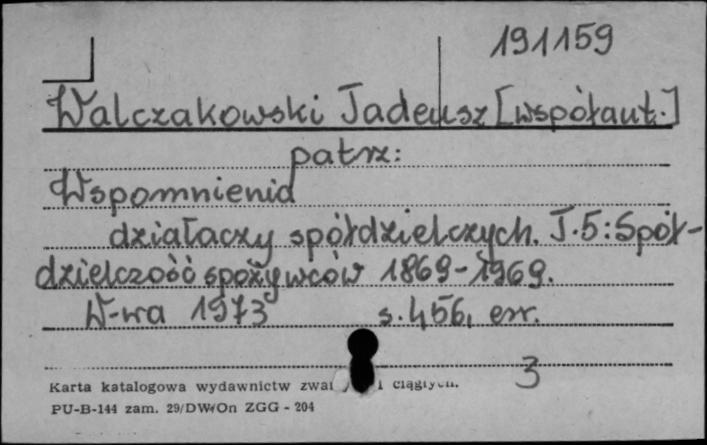 191159
Walczakowski Tadeusz [współaut.]
patrz:
Wspomnienia
działaczy spółdzielczych. T.5: Spół-
dzielczość spożywców 1869-1969.
W-wa 1973 s. 456, err.
3
Karta katalogowa wydawnictw i ciągłych.
PU-B-144 zam. 29/DW/On ZGG - 204